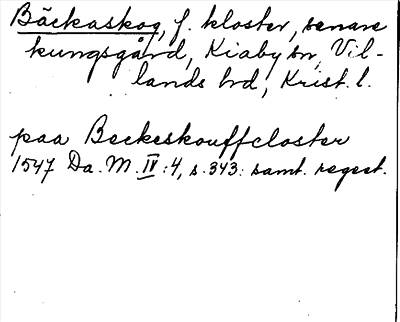 Bäckaskog, f. kloster, senare
kungsgård, Kiaby sn, Vil-
lands hd, Krist. l.
paa Beckeskouffcloster
1547 Da. M. IV:4, s. 343: samt. regest.